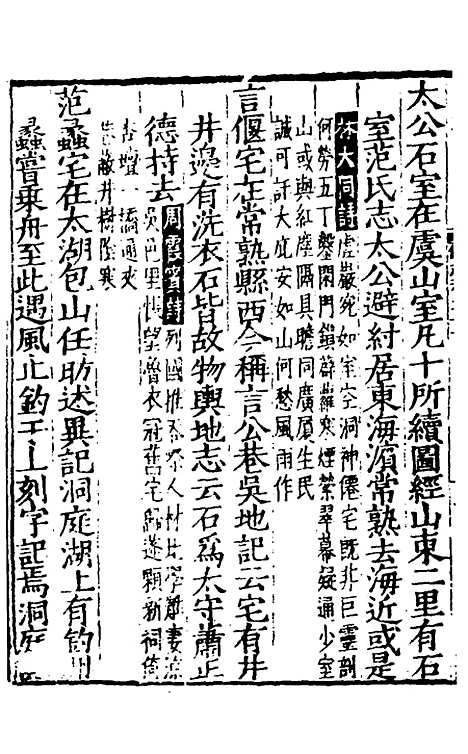 太公石室在虞山室凡十所續圖經山東二里有石
室范氏志太公避紂居東海濵常熟去海近或是
林大同詩虛巖宛如室空洞神僊宅既非巨靈剖
何勞五丁鑿閑門鎖薜蘿寒煙縈翠幕疑通少室
山或與紅塵隔具瞻同廣厦生民
誠可託大庇安如山何愁風雨作
言偃宅在常熟縣西今稱言公巷吳地記云宅有井
井邊有洗衣石皆故物輿地志云石爲太守蕭正
德持去周霞實詩列國推 人材此 妻凉
吳邑里悵望魯衣冠舊宅 蓬顆新祠倚
杏壇一橋通夾
巷蔽井樹陰寒
范蠡宅在太湖包山任昉述異記洞庭湖上有釣洲
蠡嘗乗舟至此遇風止釣于上刻字記焉洞庭